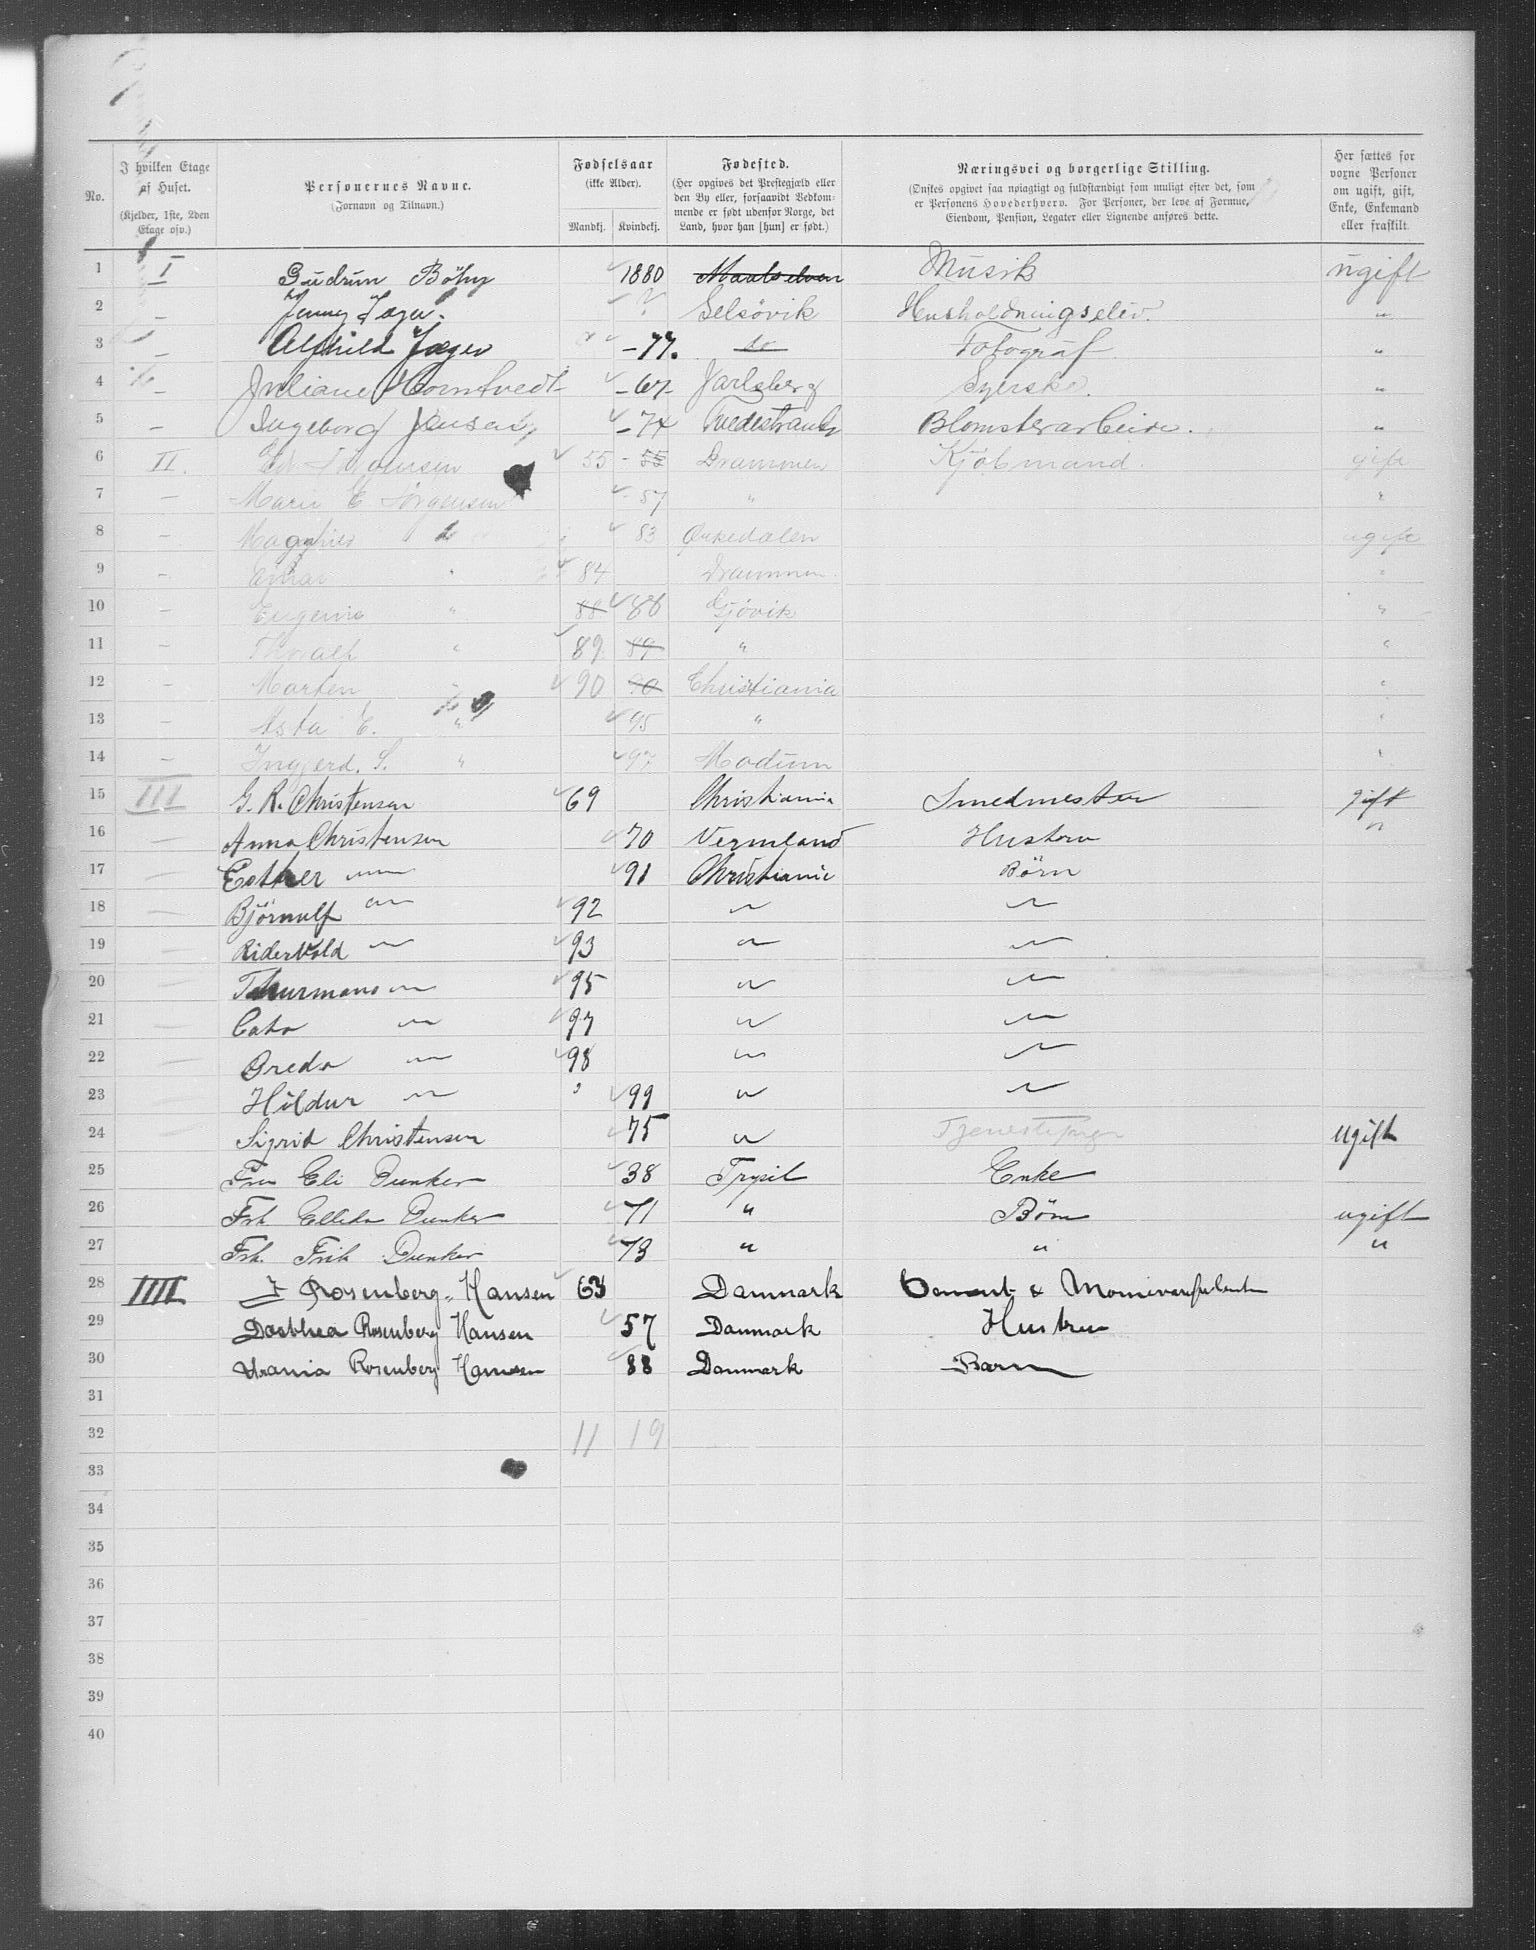 No.
I hvilken Etage af Huset. (Kjelder, 1ste, 2den Etage osv.)
Personernes Navne. (Fornavn og Tilnavn.)
Fødselsaar (ikke Alder). Mandkj. Kvindekj.
Fødested. (Her opgives det Prestegjæld eller den By eller, forsaavidt Vedkommende er født udenfor Norge, det Land, hvor han [hun] er født.)
Næringsvei og borgerlige Stilling. (Ønskes opgivet saa nøiagtigt og fuldstændigt som muligt efter det, som er Personens Hovederhverv. For Personer, der leve af Formue, Eiendom, Pension, Legater eller Lignende anføres dette.
Her sættes for voxne Personer om ugift, gift, Enke, Enkemand eller fraskilt.
1 I Gudrun 1880 Maalselven Musik ugift
2 — Jenny Jæger. ? Selsövik Husholdningselev. "
3 — Alfhild Jæger – 77. do Fotograf "
4 — Juliane Horntvedt – 67 Jarlsberg Syerske. "
5 — Ingeborg Jensen – 74 Tvedestrand Blomsterarbeide. "
6 II. Jörgensen 55 – 55 Drammen Kjöbmand. gift
7 — Marie E Jørgensen 57 " "
8 — Magnhild 83 Orkedalen ugift
9 — Einar " 84 Drammen "
10 — Eugenie " 88 88 Gjøvik "
11 — Thoralf " 89 89 " "
12 — Marten " 90 90 Christiania "
13 — Asta E. " 95 " "
14 — Ingerd. S. " 97 Modum "
15 III G. R. Christensen 69 Christiania Smedmester gift
16 — Anna Christensen 70 Vermland Hustru "
17 — Esther — 91 Christiania Börn
18 — Björnulf — 92 — —
19 — Ridervold — 93 — —
20 — Thurmann — 95 — —
21 — Cato — 97 — —
22 — Bredo — 98 — —
23 — Hildur — 99 — —
24 Sigrid Christensen 75 — Tjenestepige ugift
25 Fru Eli Dunker 38 Trysil Enke
26 Frk Ellida Dunker 71 " Börn ugift
27 Frk. Dunker 73 " " "
28 IIII J Rosenberg-Hansen 63 Danmark Cement &
29 Dorthea Rosenberg Hansen 57 Danmark Hustru
30 Urania Rosenberg Hansen 88 Danmark Barn
31
32 11 19
33
34
35
36
37
38
39
40